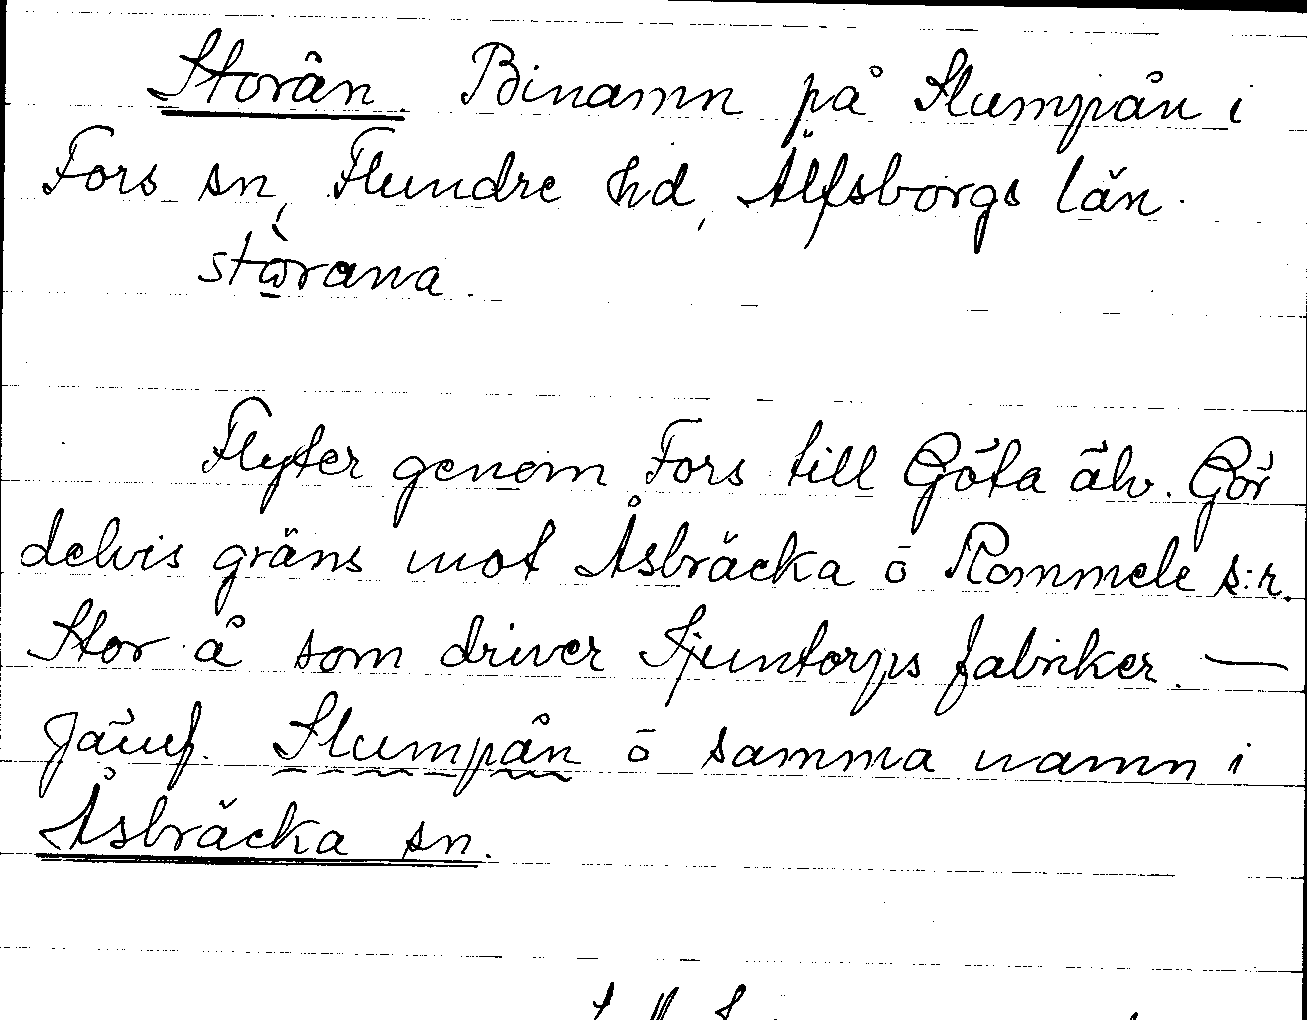 Storån. Binamn på Slumpån i
Fors sn, Flundre hd, Älfsborgs län.
stòrana.
Flyter genom Fors till Göta älv. Gör
delvis gräns mot Åsbräcka o Rommele s:r.
Stor å som driver Fjuntorps fabriker. —
Jämf. Slumpån o samma namn i
Åsbräcka sn.